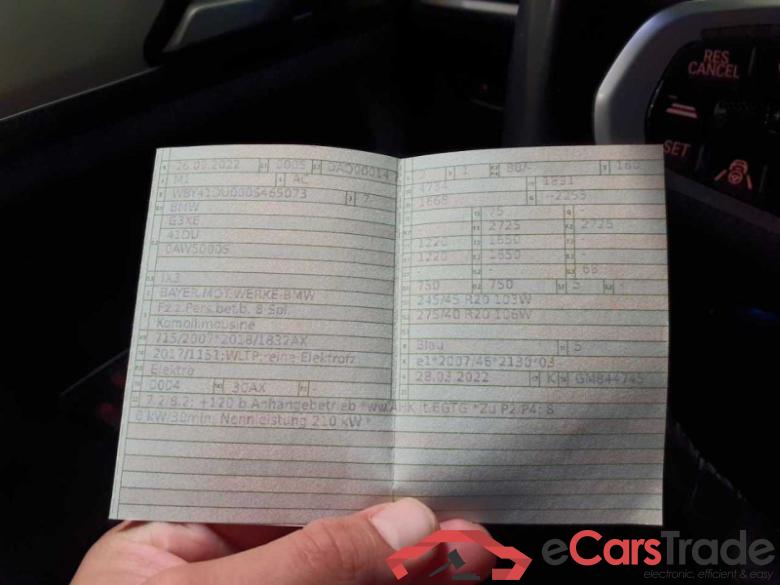 RES
CANCEL
SET
26.09.2022 0005
M1 AC
7
BMW
G3XE
41DU
0AW50005
IX3
BAYER.MOT.WERKE-BMW
Fz.z.Pers.bef.b. 8 Spl.
Kombilimousine
715/2007*2018/1832AX
2017/1151;WLTP;reine Elektrofz
Elektro
0004 30AX
7.2/8.2: +120 b.Anhängebetrieb *ww.AHK lt.EGTG *Zu P2/P4: 8
0 kW/30min: Nennleistung 210 kW *
1 80/- 180
4734 1891
1668 2255
75 -
2725 2725
1220 1650
1220 1650
68
750 750 5 -
245/45 R20 103W
275/40 R20 106W
Blau 5
e1*2007/46*2130*03
28.03.2022 K GM844745
eCarsTrade
electronic, efficient & easy